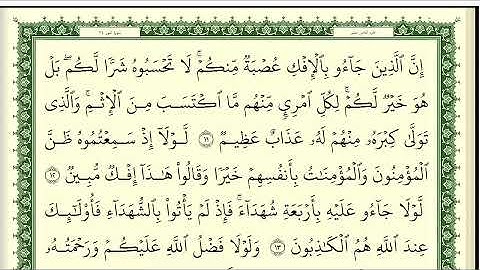 إِنَّ الَّذِينَ جَاءُو بِالْإِفْكِ عُصْبَةٌ مِّنكُمْ ۚ لَا تَحْسَبُوهُ شَرًّا لَّكُم ۖ بَلْ
هُوَ خَيْرٌ لَّكُمْ ۚ لِكُلِّ امْرِئٍ مِّنْهُم مَّا اكْتَسَبَ مِنَ الْإِثْمِ ۚ وَالَّذِي
تَوَلَّىٰ كِبْرَهُ مِنْهُمْ لَهُ عَذَابٌ عَظِيمٌ ۝١١ لَّوْلَا إِذْ سَمِعْتُمُوهُ ظَنَّ
الْمُؤْمِنُونَ وَالْمُؤْمِنَاتُ بِأَنفُسِهِمْ خَيْرًا وَقَالُوا هَٰذَا إِفْكٌ مُّبِينٌ ۝١٢
لَّوْلَا جَاءُو عَلَيْهِ بِأَرْبَعَةِ شُهَدَاءَ ۚ فَإِذْ لَمْ يَأْتُوا بِالشُّهَدَاءِ فَأُولَٰئِكَ
عِندَ اللَّهِ هُمُ الْكَاذِبُونَ ۝١٣ وَلَوْلَا فَضْلُ اللَّهِ عَلَيْكُمْ وَرَحْمَتُهُ